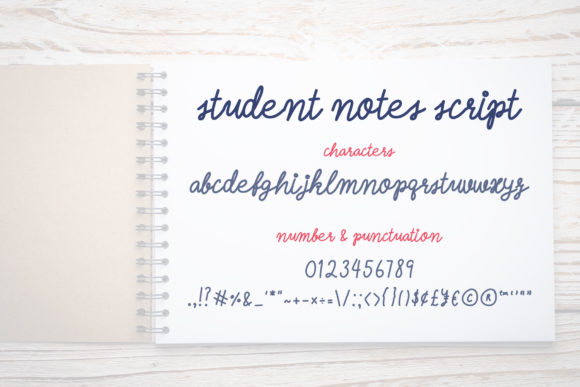 student notes script
characters
abcdefghijklmnopqrstuvwxyz
number & punctuation
0123456789
.,!?#%&_'*"~+-×÷=\/:;<>{}()$¢£¥€©®